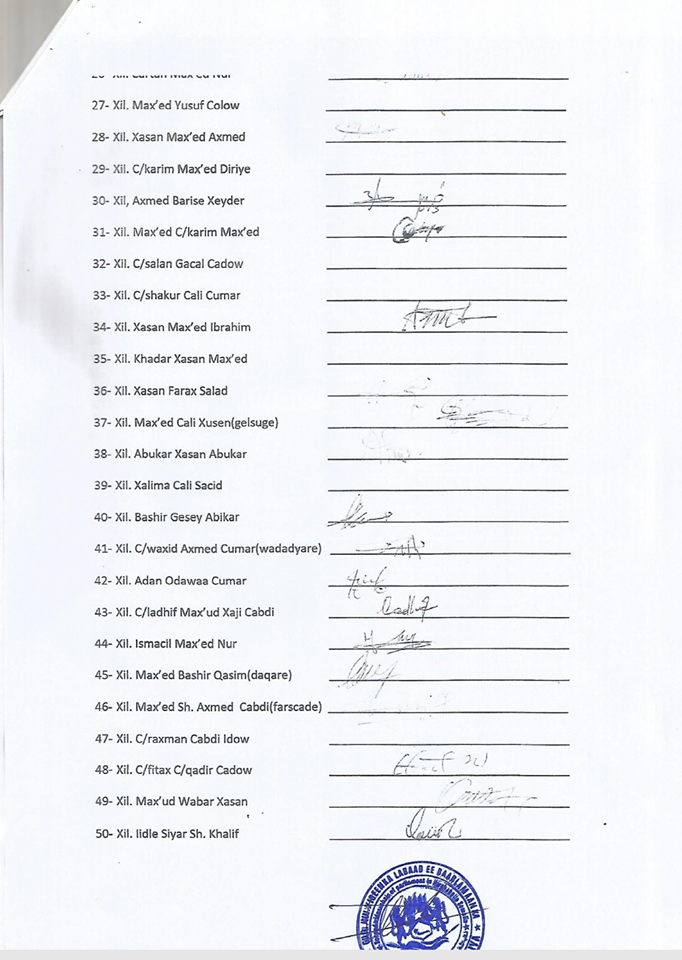 27- Xil. Max'ed Yusuf Colow
28- Xil. Xasan Max'ed Axmed
29- Xil. C/karim Max'ed Diriye
30- Xil, Axmed Barise Xeyder
31- Xil. Max'ed C/karim Max'ed
32- Xil. C/salan Gacal Cadow
33- Xil. C/shakur Cali Cumar
34- Xil. Xasan Max'ed Ibrahim
35- Xil. Khadar Xasan Max'ed
36- Xil. Xasan Farax Salad
37- Xil. Max'ed Cali Xusen(gelsuge)
38- Xil. Abukar Xasan Abukar
39- Xil. Xalima Cali Sacid
40- Xil. Bashir Gesey Abikar
41- Xil. C/waxid Axmed Cumar(wadadyare)
42- Xil. Adan Odawaa Cumar
43- Xil. C/ladhif Max'ud Xaji Cabdi
44- Xil. Ismacil Max'ed Nur
45- Xil. Max'ed Bashir Qasim(daqare)
46- Xil. Max'ed Sh. Axmed Cabdi(farscade)
47- Xil. C/raxman Cabdi Idow
48- Xil. C/fitax C/qadir Cadow
49- Xil. Max'ud Wabar Xasan
50- Xil. Iidle Siyar Sh. Khalif
LABAAD EE BAARLAMAANKA